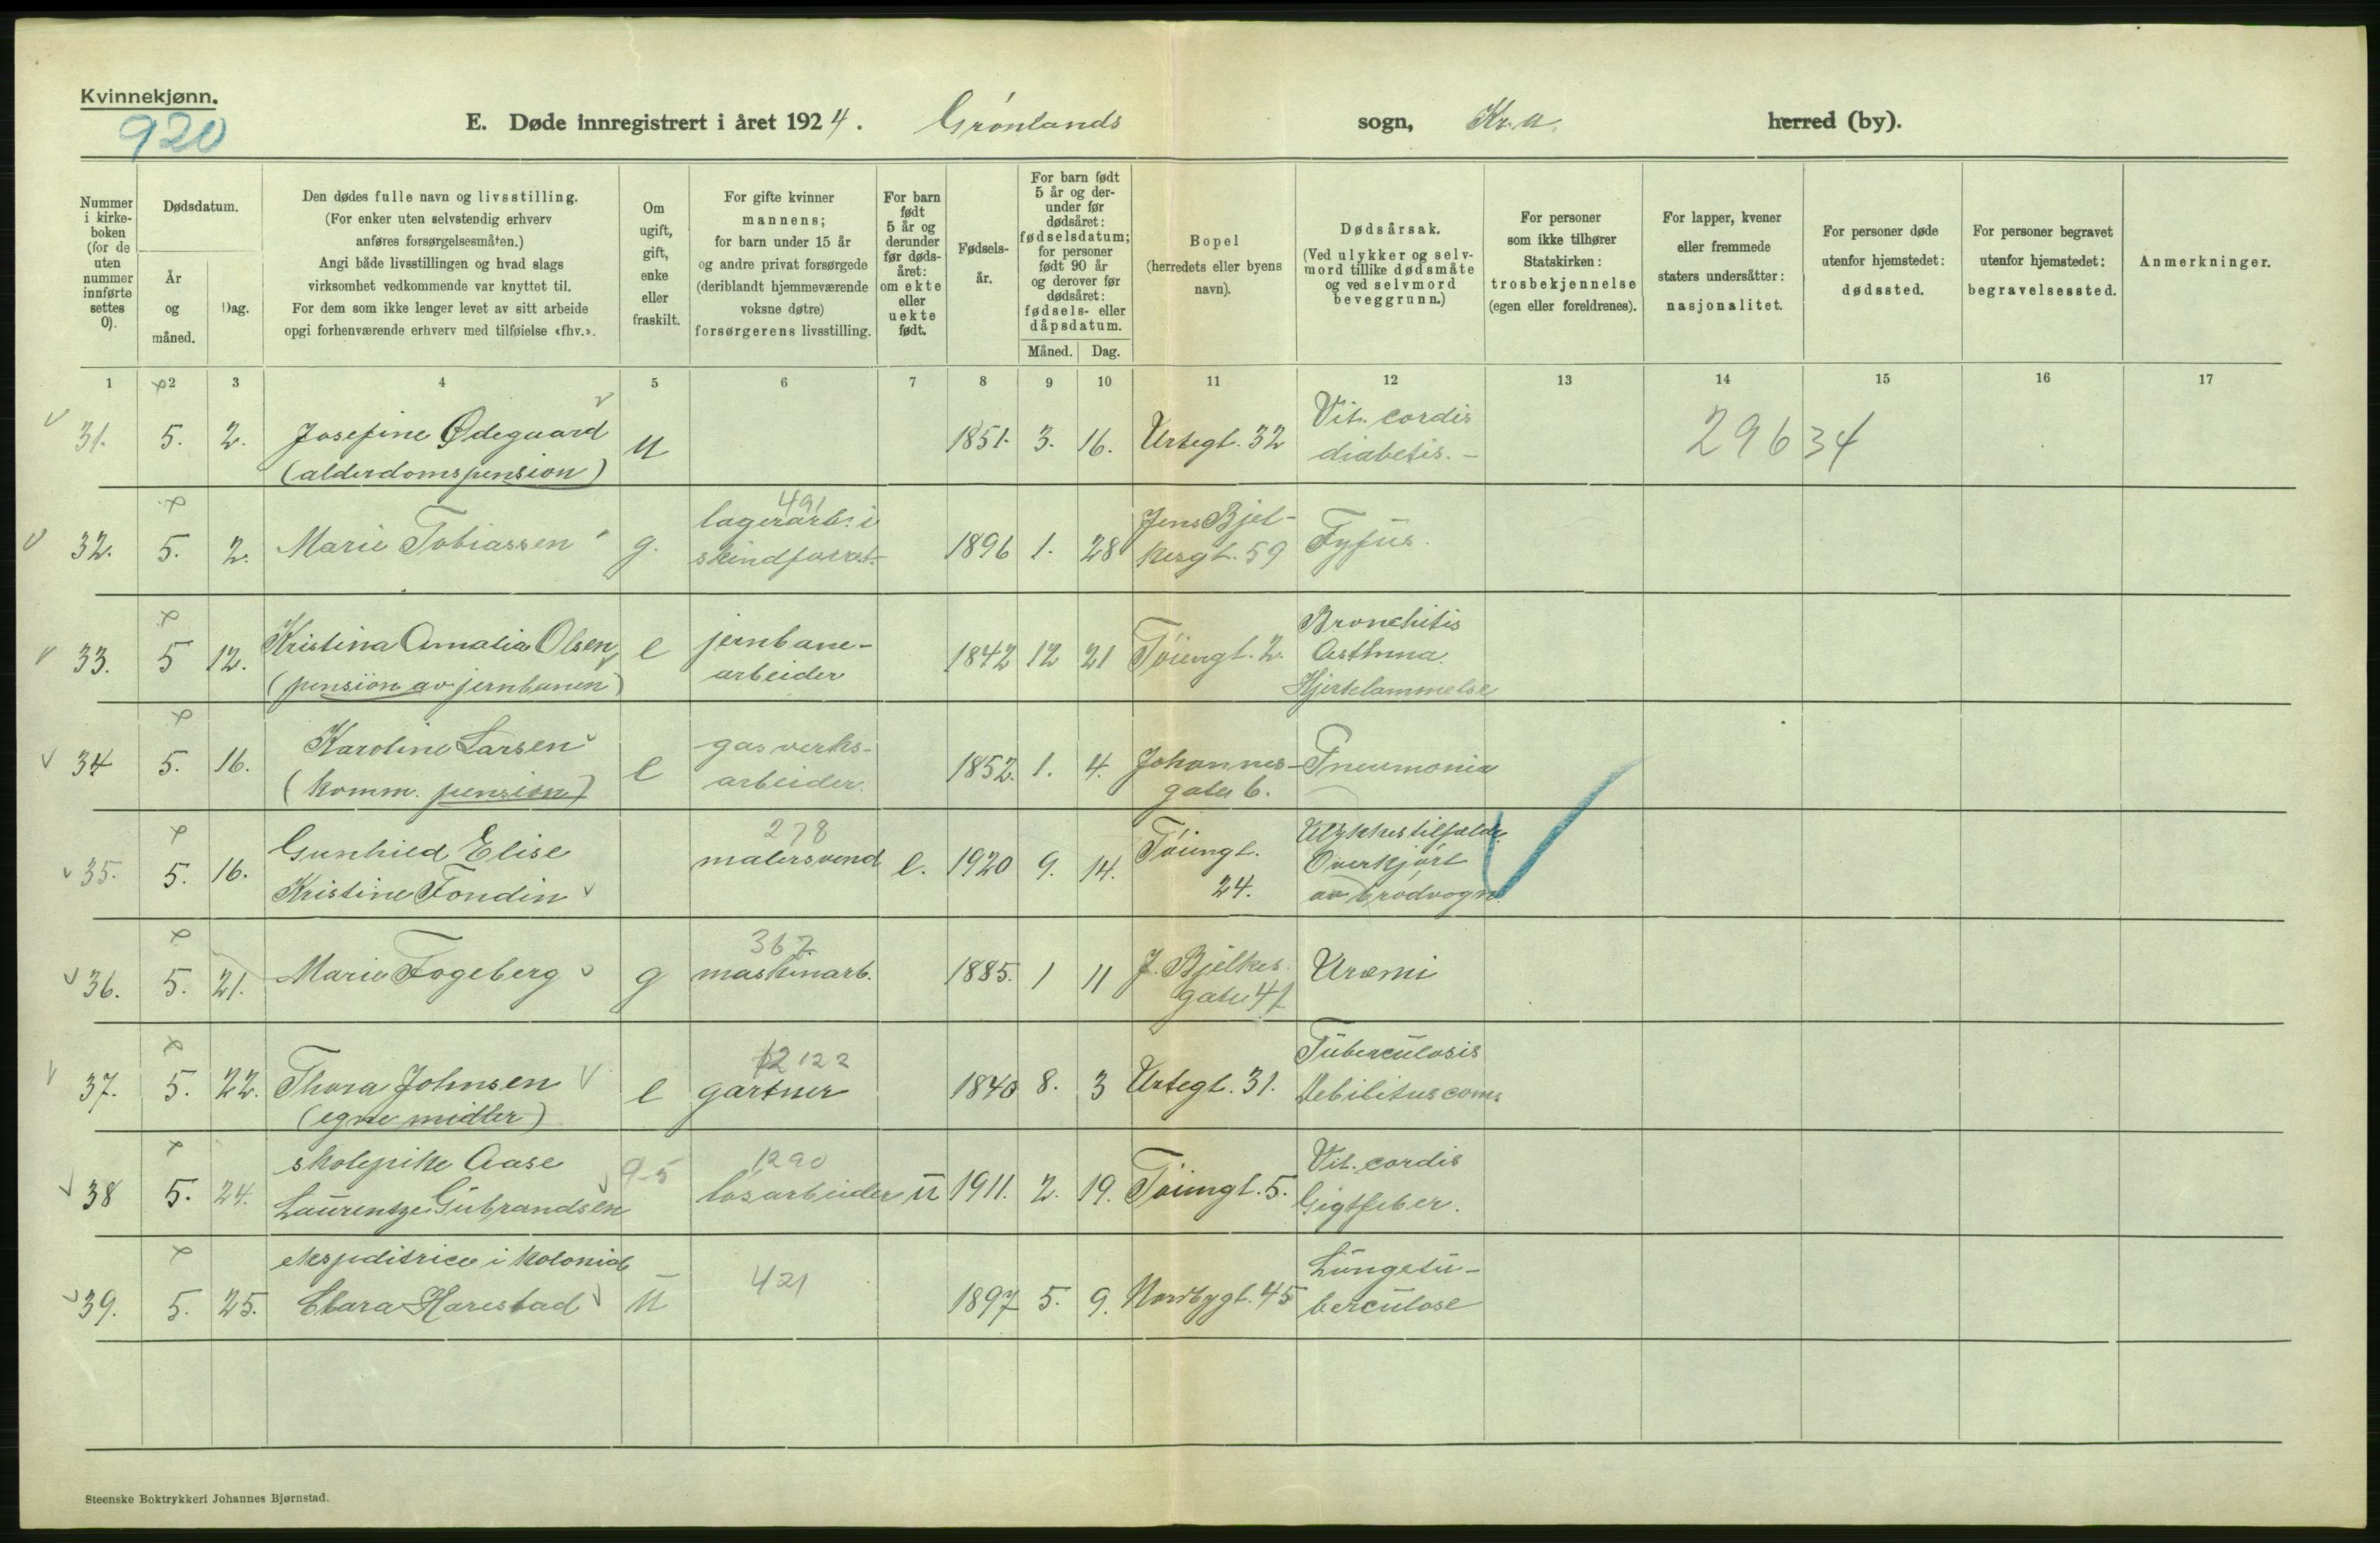 Kvinnekjønn.
920
E. Døde innregistrert i året 1924. Grønlands sogn, Kr.a. herred (by).
Nummer i kirkeboken (for de uten nummer innførte settes 0).
Dødsdatum.
År og måned.
Dag.
Den dødes fulle navn og livsstilling.
(For enker uten selvstendig erhverv
anføres forsørgelsesmåten.)
Angi både livsstillingen og hvad slags
virksomhet vedkommende var knyttet til.
For dem som ikke lenger levet av sitt arbeide
opgi forhenværende erhverv med tilføielse «fhv.».
Om ugift, gift, enke eller fraskilt.
For gifte kvinner
mannens;
for barn under 15 år
og andre privat forsørgede
(deriblandt hjemmeværende
voksne døtre)
forsørgerens livsstilling.
For barn født 5 år og derunder før dødsåret: om ekte eller uekte født.
Fødselsår.
For barn født 5 år og derunder før dødsåret: fødselsdatum; for personer født 90 år og derover før dødsåret: fødsels- eller dåpsdatum.
Måned. Dag.
Bopel
(herredets eller byens
navn).
Dødsårsak.
(Ved ulykker og selv-
mord tillike dødsmåte
og ved selvmord
beveggrunn.)
For personer
som ikke tilhører
Statskirken:
trosbekjennelse
(egen eller foreldrenes).
For lapper, kvener
eller fremmede
staters undersåtter:
nasjonalitet.
For personer døde
utenfor hjemstedet:
dødssted.
For personer begravet
utenfor hjemstedet:
begravelsessted.
Anmerkninger.
1 2 3 4 5 6 7 8 9 10 11 12 13 14 15 16 17
31. 5. 2. Josefine Ødegaard u 1851. 3. 16. Urtegt. 32 Vit. cordis
(alderdomspension) diabetis. – 29634
491
32. 5. 2. Marie Tobiassen g. lagerarb. i 1896 1. 28 Jens Bjel- Tyfus.
kesgt. 59
33. 5 12. Kristina Amalia Olsen e jernbane- 1842 12 21 Tøiengt. 2. Bronchitis
(pension av jernbanen) arbeider Asthma.
Hjertelammelse
34 5. 16. Karoline Larsen e gasverks- 1852. 1. 4. Johannes- Pneumonia
(Komm. pension) arbeider. gaten 6.
278
35. 5. 16. Gunhild Elise malersvend e. 1920 9. 14. Tøiengt. Ulykkestilfælde
Kristine Fondin 24. Overkjørt
av brødvogn.
367
36. 5. 21. Marie Fogeberg g maskinarb. 1885. 1 11 J. Bjelkes Uræmi
gate 41
122
37. 5. 22. Thora Johnsen e gartner 1840 8. 3 Urtegt. 31. Tuberculosis
(egne midler)
1290
38 5. 24. skolepike Aase 9-5 løsarbeider u 1911. 2. 19. Tøiengt. 5. Vit. cordis
Laurentze Gubrandsen Gigtfeber.
39. 5. 25. ekspeditrice i kolonial u 421 1897 5. 9. Nordbygt. 45 Lungetu-
Clara Harestad berculose
Steenske Boktrykkeri Johannes Bjørnstad.